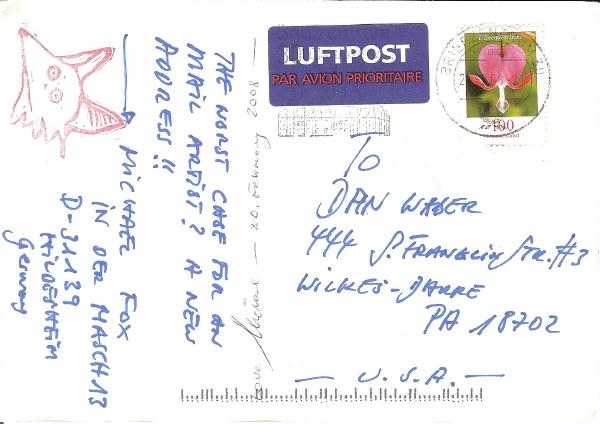 THE WORST CASE FOR AN
MAIL ARTIST? A NEW
ADDRESS!!
MICHAEL FOX
IN DER MASCH 13
D-31139
HILDESHEIM
Germany
love Michael — 20. February 2008 —
LUFTPOST
PAR AVION PRIORITAIRE
100
TO
DAN WABER
444 S. FRANKLIN STR. #3
WILKES-BARRE
PA 18702
— U.S.A. —